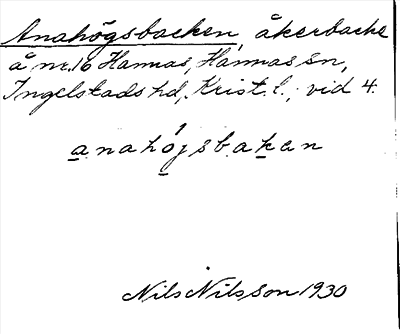 Anahögsbacken, åkerbacke
å nr. 16 Hannas, Hannas sn,
Ingelstads hd, Krist. l., vid 4.
anahójsbakan
Nils Nilsson 1930